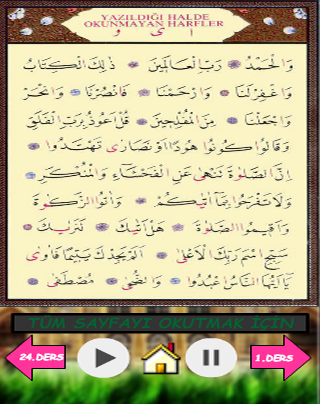 YAZILDIĞI HALDE
OKUNMAYAN HARFLER
ا ى و
وَالْحَمْدُ رَبِّ الْعَالَمِينَ ذٰلِكَ الْكِتَابُ
وَاغْفِرْ لَنَا وَارْحَمْنَا فَانْصُرْنَا وَانْحَرْ
وَاجْعَلْنَا مِنَ الْمُفْلِحِينَ قُلْ اَعُوذُ بِرَبِّ الْفَلَقِ
وَقَالُوا كُونُوا هُودًا اَوْ نَصَارٰى تَهْتَدُوا
اِنَّ الصَّلٰوةَ تَنْهٰى عَنِ الْفَحْشَٓاءِ وَالْمُنْكَرِ
وَلَا تَفْرَحُوا بِمَٓا اٰتٰيكُمْ وَاٰتُوا الزَّكٰوةَ
وَاَقِيمُوا الصَّلٰوةَ هَلْ اَتٰيكَ
سَبِّحِ اسْمَ رَبِّكَ الْاَعْلٰى اَلَمْ يَجِدْكَ يَتِيمًا فَاٰوٰى
يَٓا اَيُّهَا النَّاسُ اعْبُدُوا وَالضُّحٰى مُصْطَفٰى
TÜM SAYFAYI OKUTMAK İÇİN
24.DERS 1.DERS